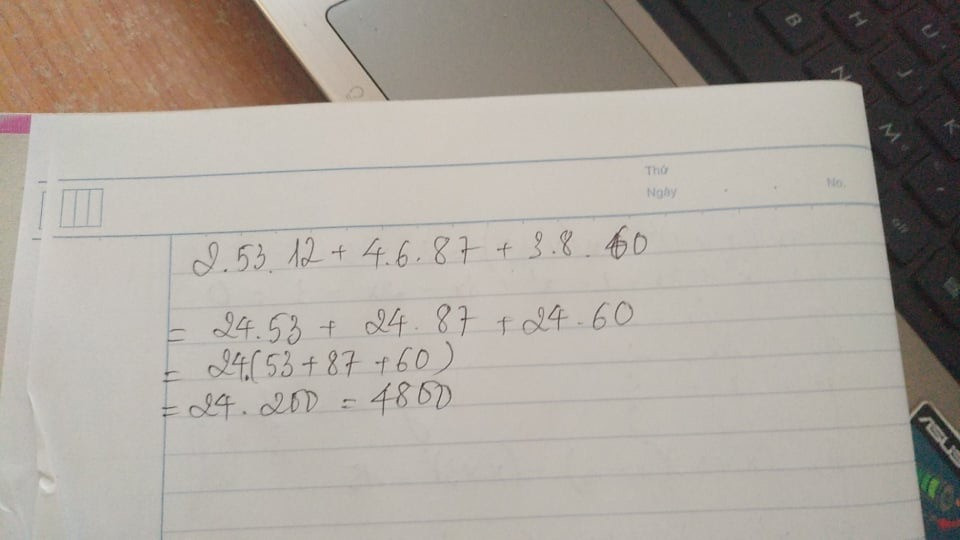 Thứ
Ngày . . No.
2.53.12 + 4.6.87 + 3.8.60
= 24.53 + 24.87 + 24.60
= 24.(53+87+60)
= 24.200 = 4800
B H U
N J
M K
ASUS